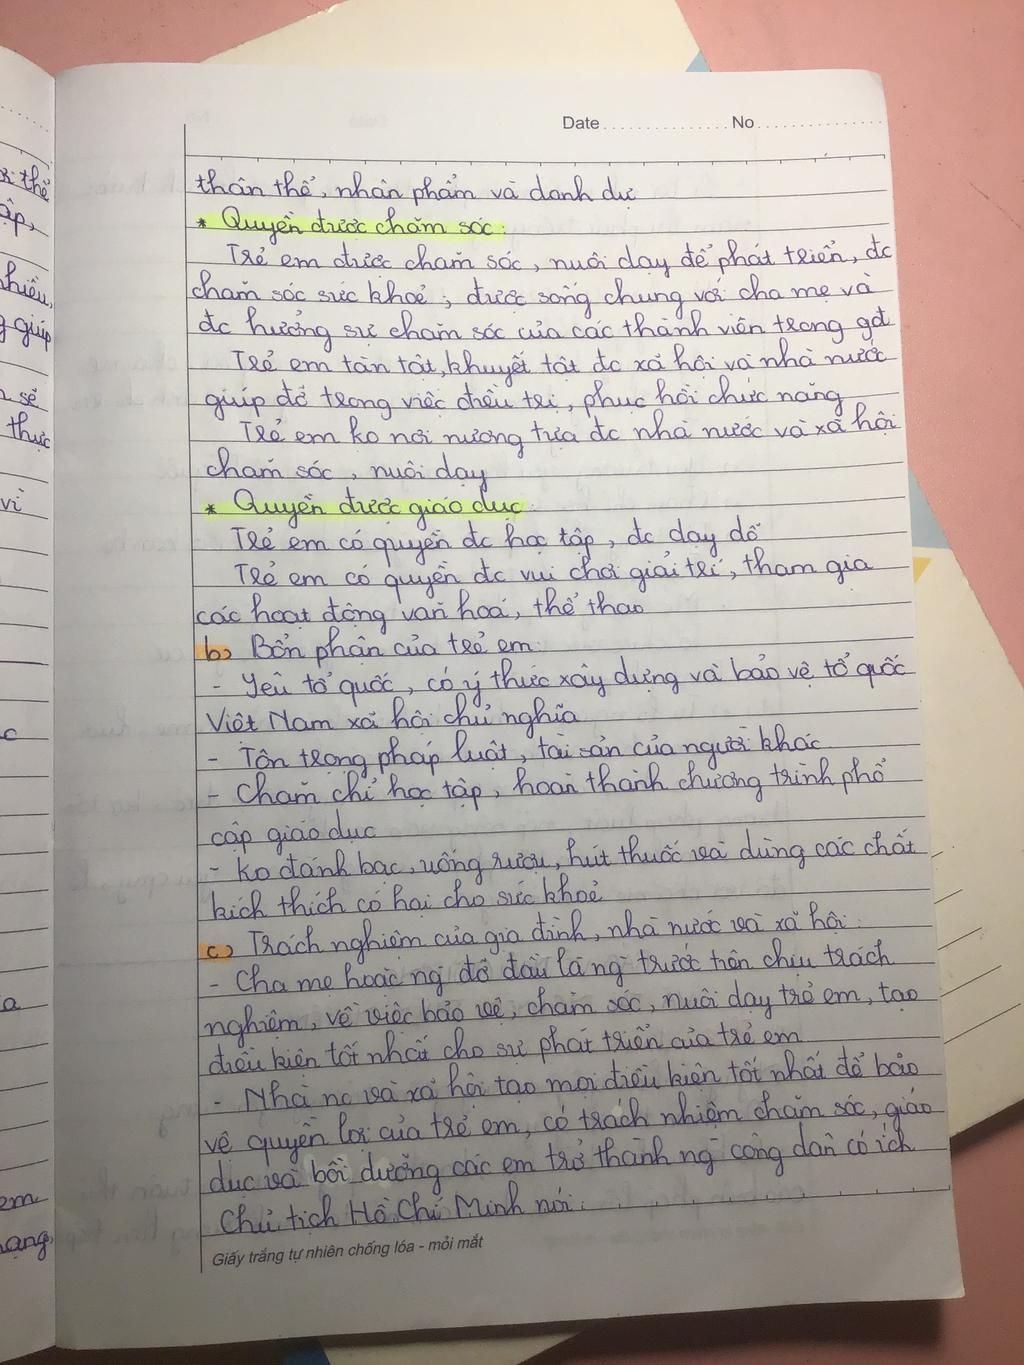 Date No
thân thể, nhân phẩm và danh dự
* Quyền được chăm sóc:
Trẻ em được chăm sóc, nuôi dạy để phát triển, đc
chăm sóc sức khoẻ; được sống chung với cha mẹ và
đc hưởng sự chăm sóc của các thành viên trong gđ
Trẻ em tàn tật, khuyết tật đc xã hội và nhà nước
giúp đỡ trong việc điều trị, phục hồi chức năng
Trẻ em ko nơi nương tựa đc nhà nước và xã hội
chăm sóc, nuôi dạy
* Quyền được giáo dục:
Trẻ em có quyền đc học tập, đc dạy dỗ
Trẻ em có quyền đc vui chơi giải trí, tham gia
các hoạt động văn hoá, thể thao
b) Bổn phận của trẻ em:
- Yêu tổ quốc, có ý thức xây dựng và bảo vệ tổ quốc
Việt Nam xã hội chủ nghĩa
- Tôn trọng pháp luật, tài sản của người khác
- Chăm chỉ học tập, hoàn thành chương trình phổ
cập giáo dục
- Ko đánh bạc, uống rượu, hút thuốc và dùng các chất
kích thích có hại cho sức khoẻ
c) Trách nghiệm của gia đình, nhà nước và xã hội:
- Cha mẹ hoặc ng đỡ đầu là ng trước tiên chịu trách
nghiệm, về việc bảo vệ, chăm sóc, nuôi dạy trẻ em, tạo
điều kiện tốt nhất cho sự phát triển của trẻ em
- Nhà nc và xã hội tạo mọi điều kiện tốt nhất để bảo
vệ quyền lợi của trẻ em, có trách nhiệm chăm sóc, giáo
dục và bồi dưỡng các em trở thành ng công dân có ích
Chủ tịch Hồ Chí Minh nói:
Giấy trắng tự nhiên chống lóa - mỏi mắt